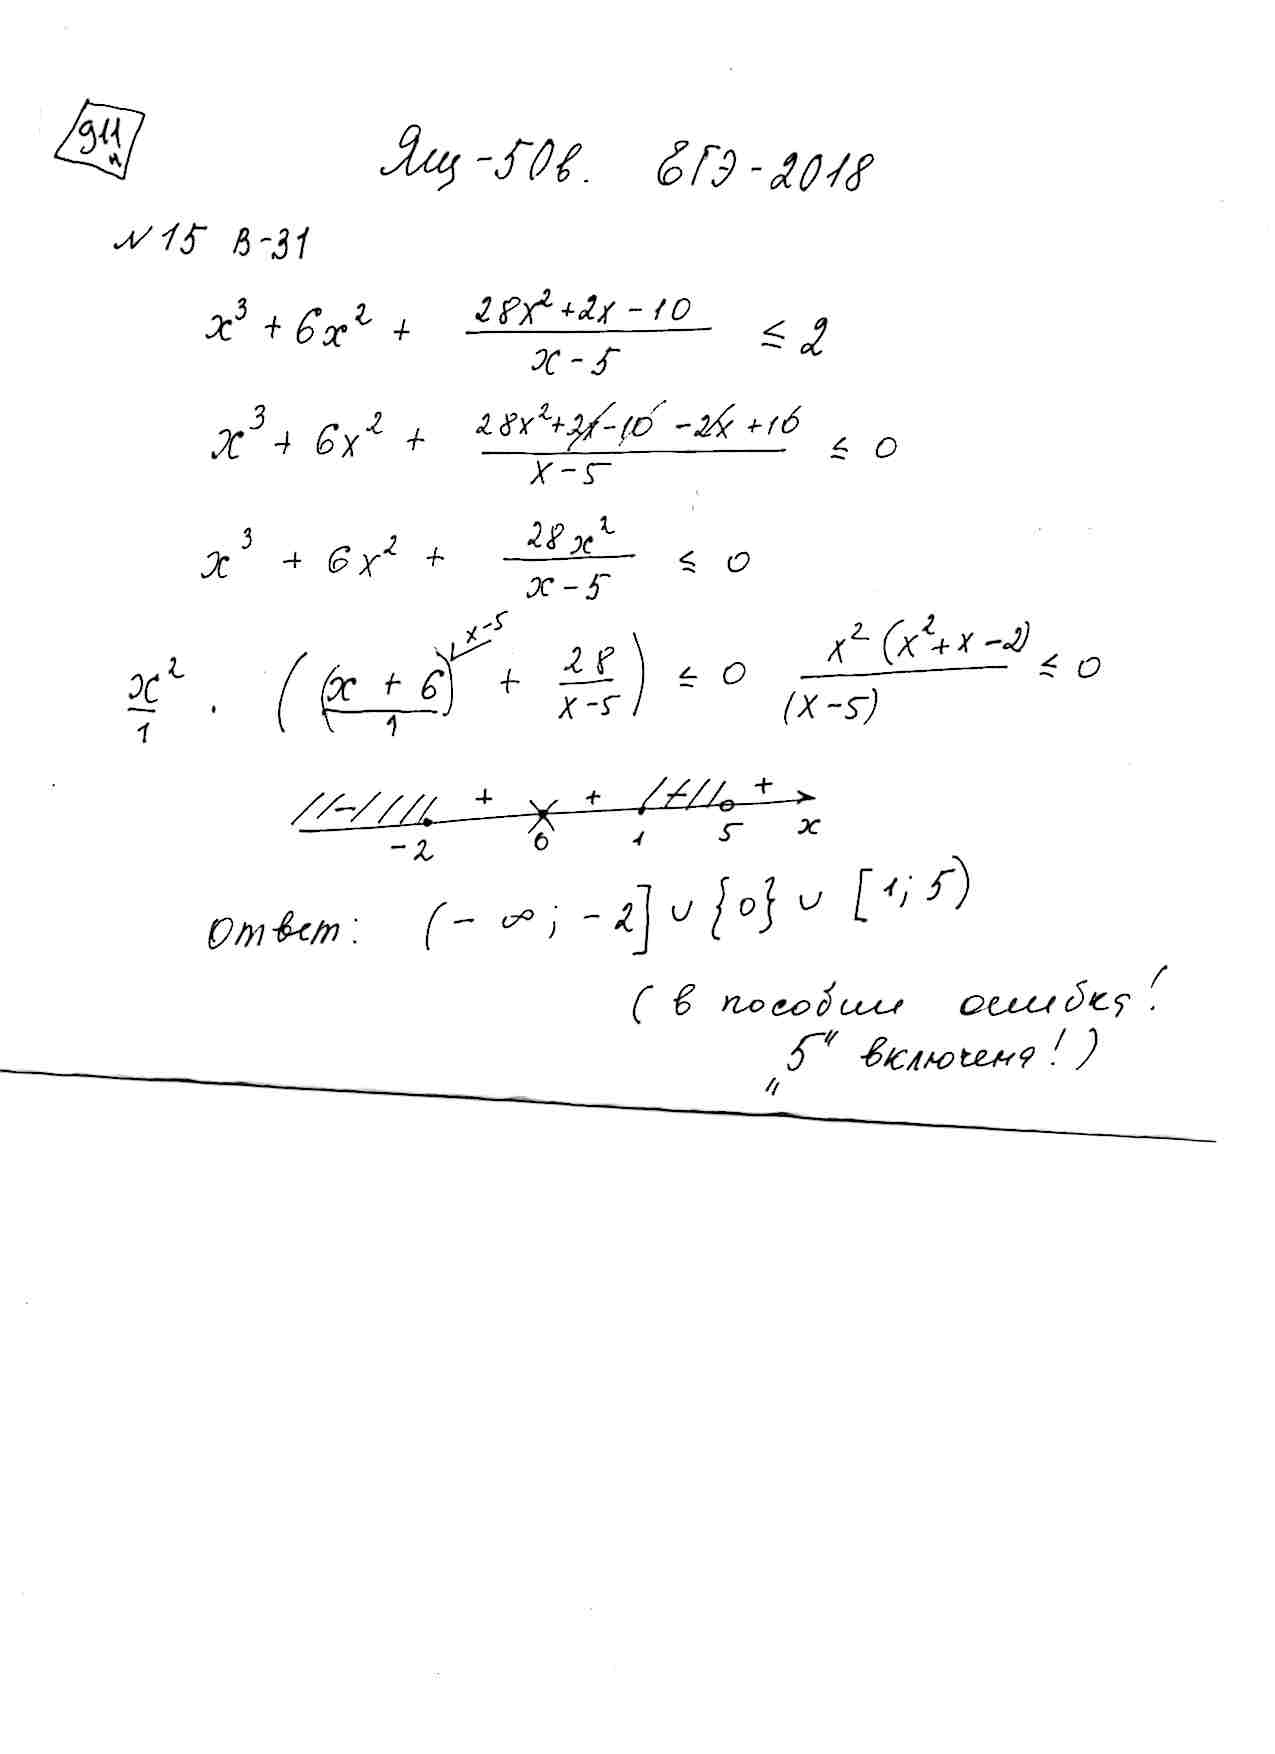 911
Ящ-50в. ЕГЭ-2018
N 15 В-31
x³ + 6x² + (28x²+2x-10)/(x-5) ≤ 2
x³ + 6x² + (28x²+2x-10-2x+10)/(x-5) ≤ 0
x³ + 6x² + 28x²/(x-5) ≤ 0
x²/1 · ((x+6)/1 ^(x-5) + 28/(x-5)) ≤ 0 x²(x²+x-2)/(x-5) ≤ 0
- + + - +
-2 0 1 5 x
Ответ: (-∞; -2] ∪ {0} ∪ [1; 5)
(в пособии ошибка!
„5“ включена!)